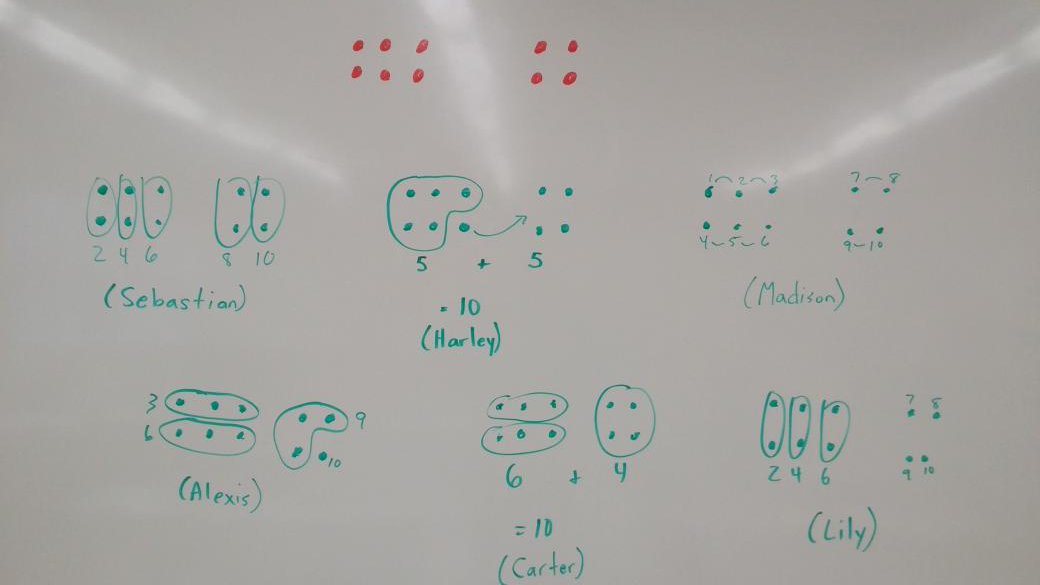 2 4 6 8 10
(Sebastian)
5 + 5
= 10
(Harley)
1 2 3 7 8
4 5 6 9 10
(Madison)
3 9
6 10
(Alexis)
6 + 4
= 10
(Carter)
7 8
2 4 6 9 10
(Lily)